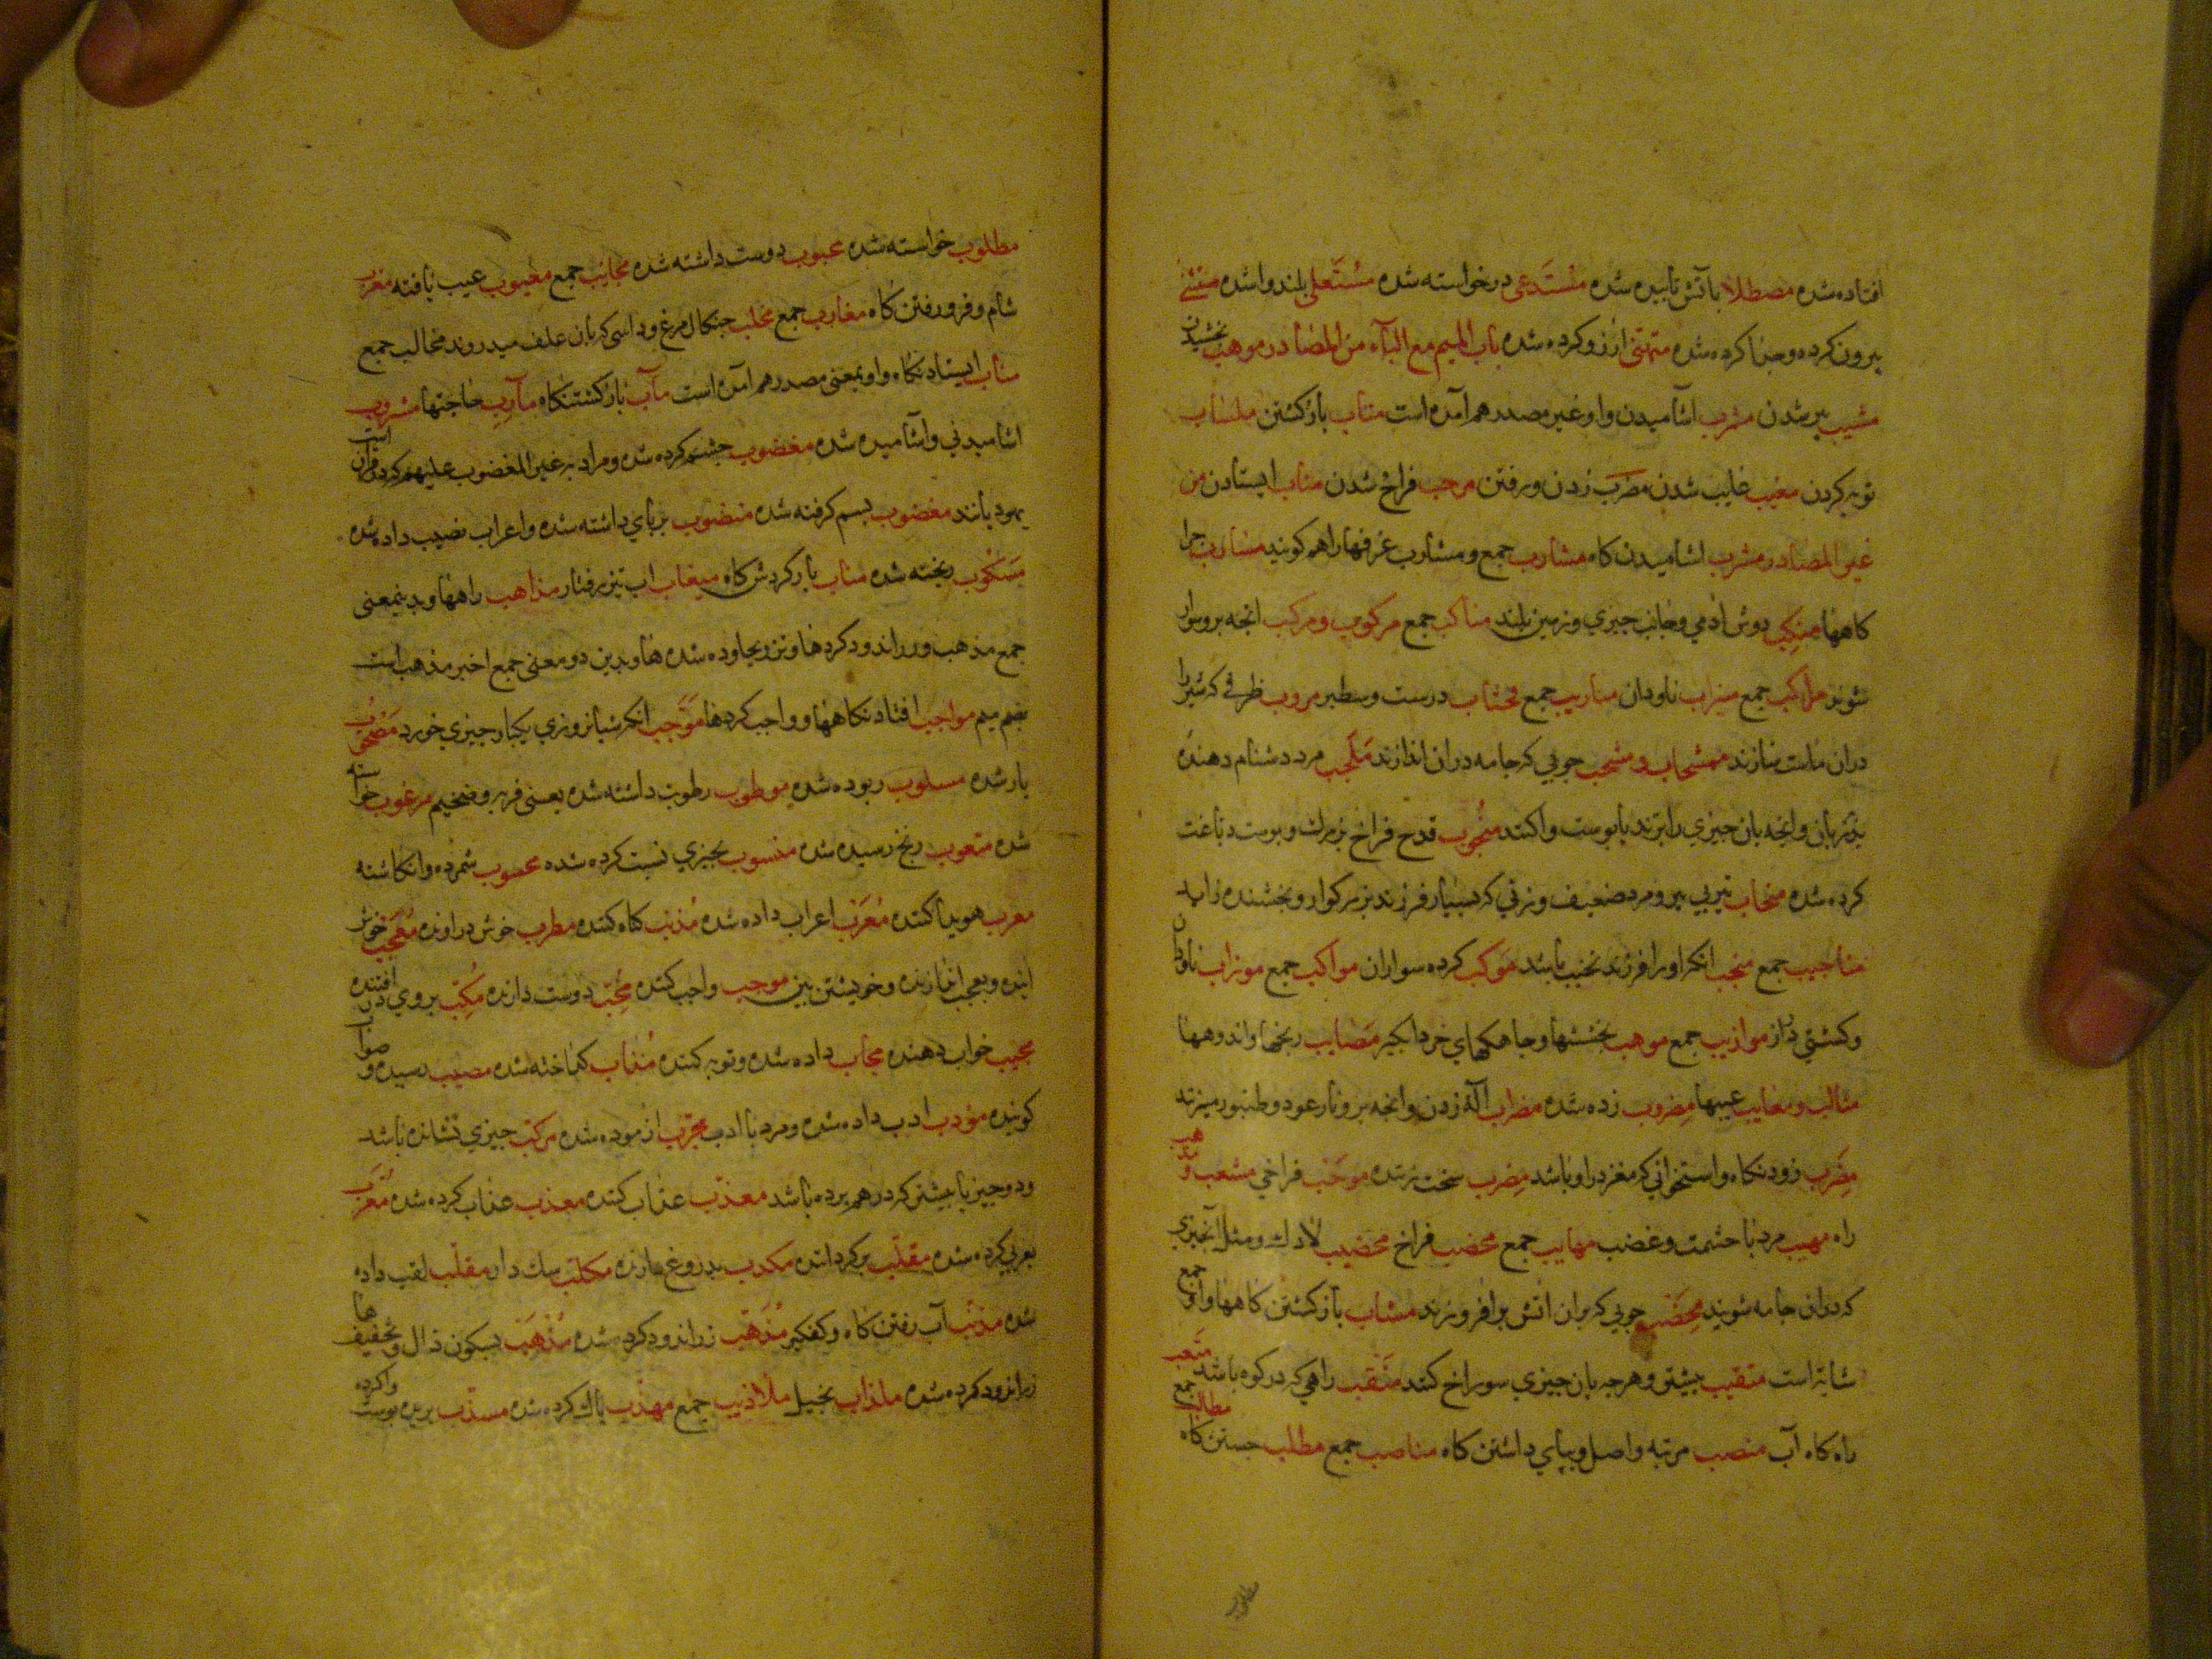 افتاده شده مصطلا باآتش تابیده شده مستدعی درخواسته شده مستعلی بلند واشده مستثنے
بیرون کرده وجدا کرده شده متمنی ارزو کرده شده باب المیم مع البآء من المصادر موهب بخشیدن
مشیب پیر شدن مشرب اشامیدن واو غیر مصدر هم آمده است متاب بازکشتن
توبه کردن مغیب غایب شدن مضرب زدن ورفتن مرحب فراخ شدن مناب ایستادن من
غیر المصادر مشرب اشامیدن کاه مشارب جمع ومشارب غرفهارا هم کویند مسارب چرا
کاهها منکب دوش ادمی وجانب چیزی وزمین بلند مناکب جمع مرکوب ومرکب انچه بروسوار
شوند مراکب جمع میزاب ناودان میازیب جمع درست وسطبر مروب ظرفے که شیر را
دران ماست سازند ممشجاب ومشجب چوبی که جامه دران اندازند مرد دشنام دهنده
وانچه بان چیزی را برند یا پوست واکنند منجوب قدح فراخ بزرك وپوست دباغت
کرده شده منجاب تیر بی پر ومرد ضعیف وزنی که بسیار فرزند بزرکوار وبخشنده زاید
مناجیب جمع منجب انکه اورا فرزند نجیب باشد موکب کرده سواران مواکب جمع موزاب ناودان
وکشتی دراز موازیب جمع موهب بخششها وجاهکهای خرد ابکیر مصایب رنجها واندوهها
مثالب ومعایب عیبها مضروب زده شده مضراب آلة زدن وانچه بر وتار عود وطنبور میزند
مضرب زودنکاه واستخوانی که مغز دراو باشد مضرب سخت زننده موحب فراخی مشعب ومذهب
راه مهیب مرد با حشمت وغضب مهایب جمع مخصب فراخ مخضیب لادك ومثل آنچیزی
که دران جامه شویند محضب چوبی که بران اتش برافروزند مثاب بازکشتن کاهها واو جمع
مثابة است مثقیب وهرچه بان چیزی سوراخ کنند مثقب راهی که در کوه باشد مثعب
راه کاه آب منصب مرتبه واصل وبپای داشتن کاه مناصب جمع مطلب جستن کاه مطالب جمع
مطلوب خواسته شده محبوب دوست داشته شده محابیب جمع معیوب عیب یافته مغرب
شام وفرو رفتن کاه مغارب جمع مخلب چنکال مرغ وداسی که بان علف میدروند مخالب جمع
مناب ایستادنکاه واو بمعنی مصدر هم آمده است مآب بازکشتنکاه مآرب حاجتها مشروب
اشامیدنی وآشامیده شده مغضوب خشم کرده شده ومراد به غیر المغضوب علیهم که در قران است
یهودیانند مغصوب بستم کرفته شده منصوب برپای داشته شده واعراب نصیب داده شده
مسکوب ریخته شده مثاب بازکردش کاه میغاب اب تیزرفتار مذاهب راهها وبدینمعنی
جمع مذهب وزراندود کردها وبدین دو معنی جمع اخیر مذهب است
بضم میم مواجب افتادنکاهها وواجب کردها موجب انکه شبانروزی یکبار چیزی خورد مصحوب
یار شده مسلوب ربوده شده موطوب رطوبت داشته شده یعنی فربه وضخیم مرغوب خواسته
شده متعوب رنج رسیده شده منسوب بچیزی نسبت کرده شده محسوب شمرده وانکاشته
معرب هویدا کننده معرب اعراب داده شده مذنب کناه کننده مطرب خوش دراونده معجب خوش
اینده وبعجب اندازنده وخویشتن بین موجب واجب کننده محب دوست دارنده مکب بروی در افتنده
مجیب جواب دهنده مجاب داده شده وتوبه کننده مذاب کداخته شده مصیب رسیده وصواب
کوینده مؤدب ادب داده شده ومرد با ادب مجرب ازموده شده مرکب چیزی نشانده باشد
ودو چیز یا بیشتر که درهم برده باشد معذب عذاب کننده معذب عذاب کرده شده معرب
بعربی کرده شده مقلب برکرداننده مکذب بدروغ دارنده مکلب سك دار ملقب لقب داده
شده مذنب آب رفتن کاه وکفکیر مذهب زراندود کرده شده مذهب بسکون ذال وتخفیف ها
زراندود کرده شده ملذاب بخیل ملاذیب جمع مهذب پاك کرده شده مشذب بریده پوست واکرده